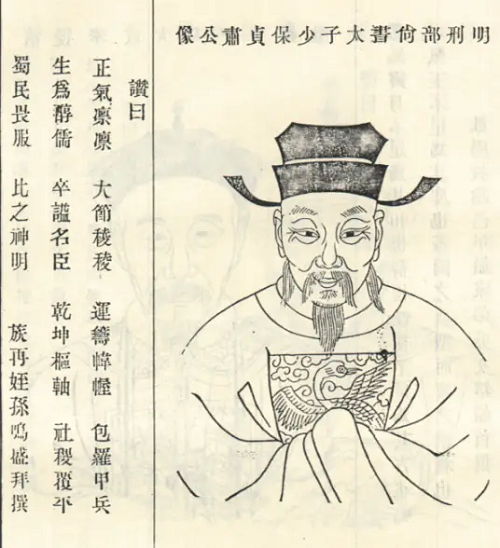 明刑部尙書太子少保貞肅公像
讚曰
正氣凛凛 大節稜稜 運籌幃幄 包羅甲兵
生爲醇儒 卒謚名臣 乾坤樞軸 社稷覆平
蜀民畏服 比之神明 族再姪孫鳴盛拜撰